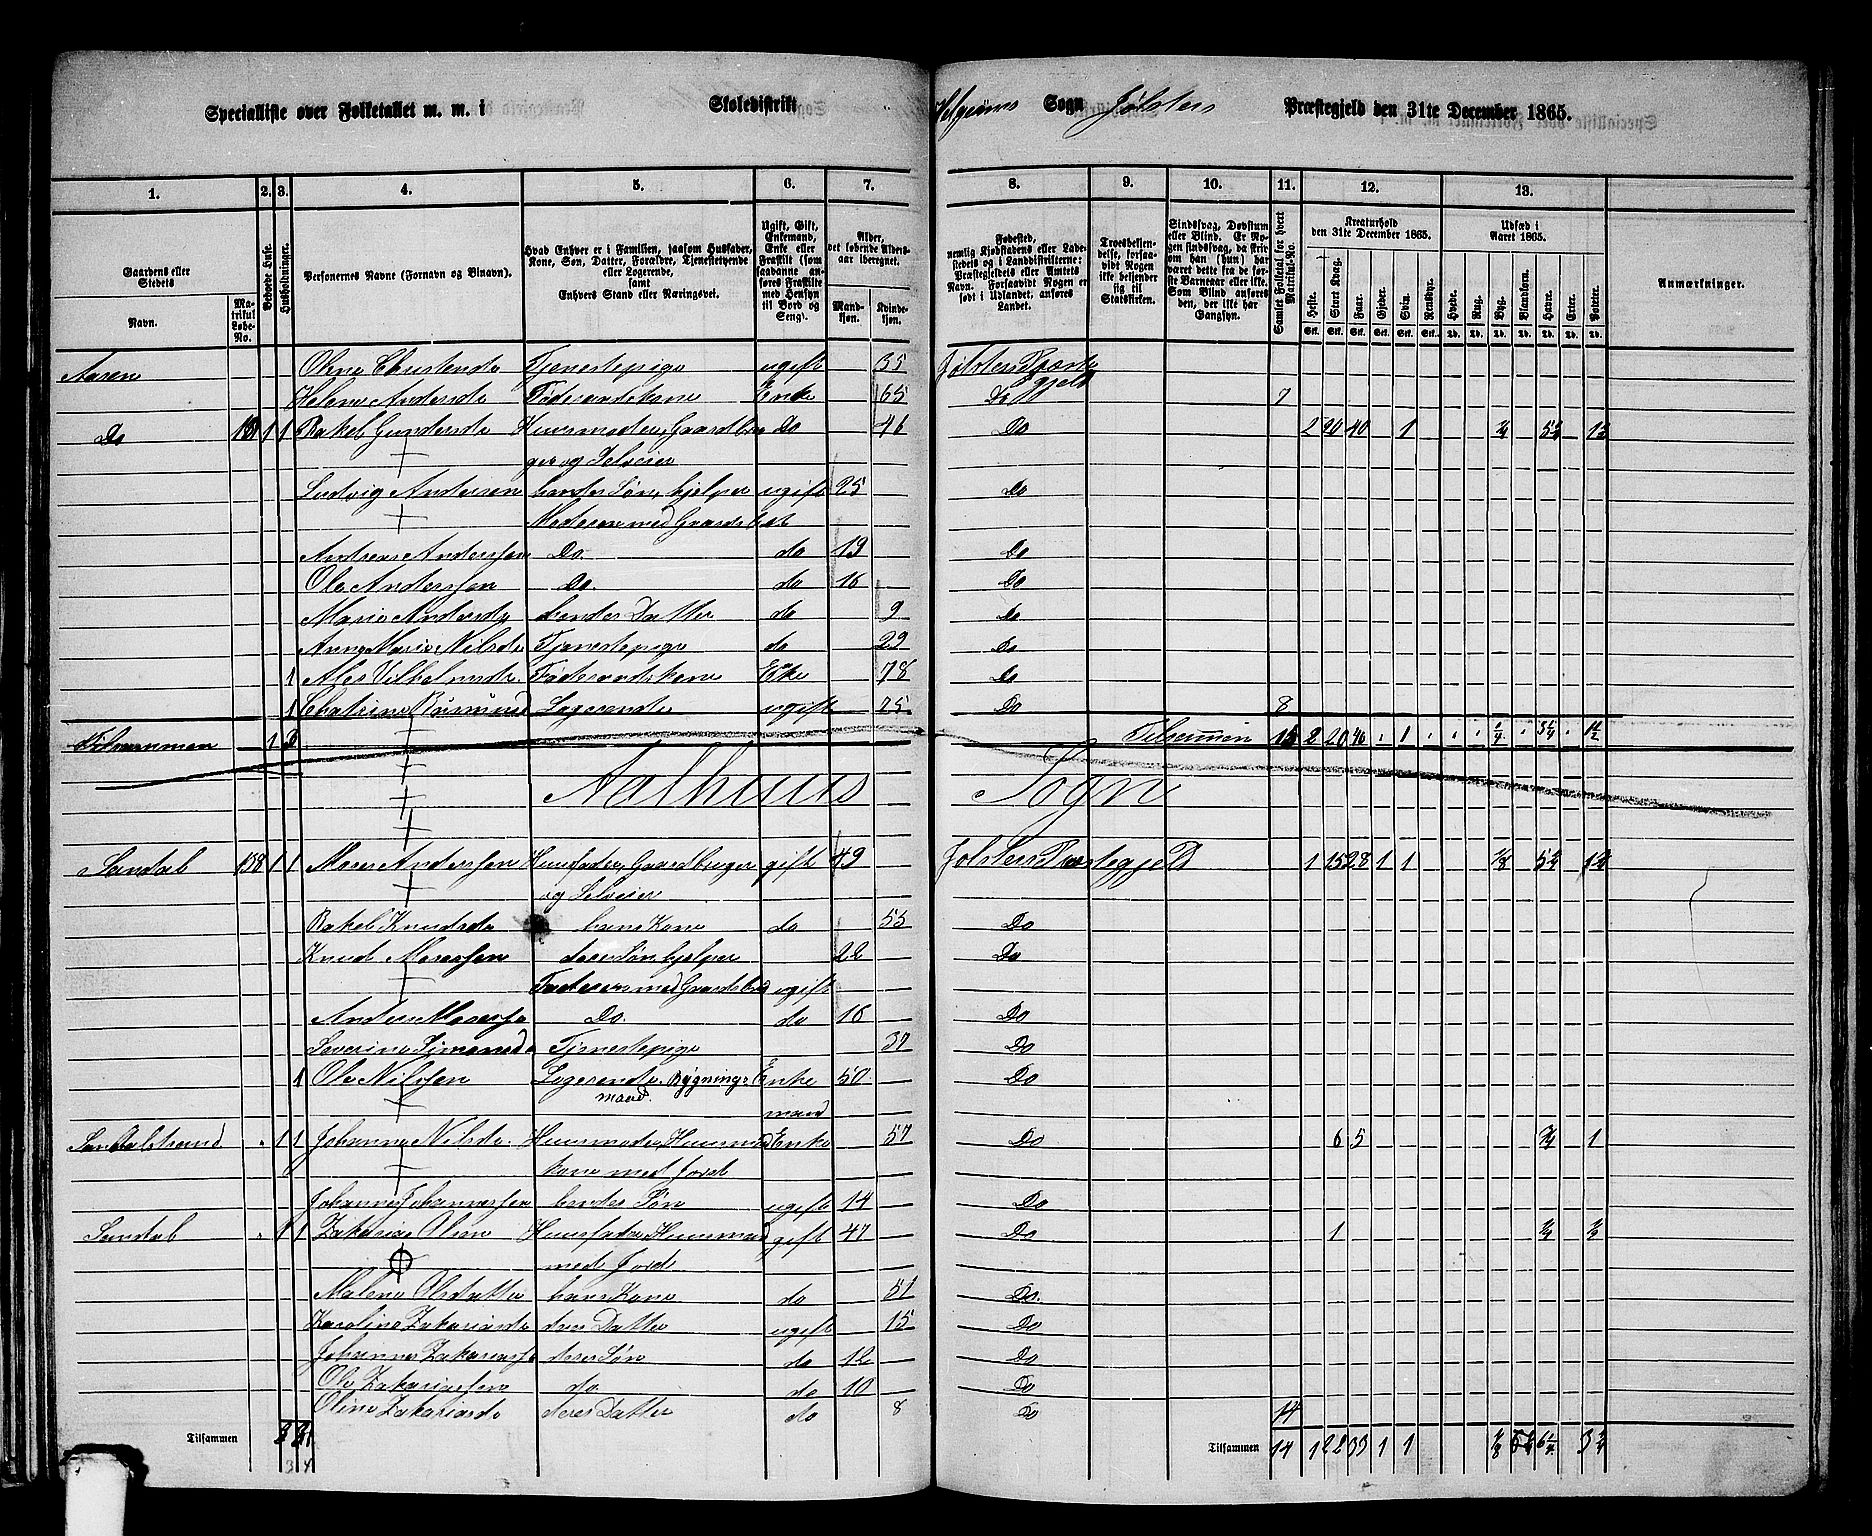 Specialliste over Folketallet m. m. i Skoledistrikt Helgeims Sogn Jølsters Præstegjeld den 31te December 1865.
1. 2. 3. 4. 5. 6. 7. 8. 9. 10. 11. 12. 13.
Gaardens eller Stedets Navn. Matrikul Løbe-No. Beboede Huse. Husholdninger. Personernes Navne (Fornavn og Binavn). Hvad Enhver er i Familien, saasom Husfader, Kone, Søn, Datter, Forældre, Tjenestetyende eller Logerende, samt Enhvers Stand eller Næringsvei. Ugift, Gift, Enkemand, Enke eller Fraskilt (som saadanne anføres Fraskilte med Hensyn til Bord og Seng). Alder, det løbende Alders-aar iberegnet. Mandkjøn. Kvindekjøn.
Fødested, nemlig Kjøbstadens eller Ladestedets eller i Landdistrikterne: Præstegjeldets eller Amtets Navn. Forsaavidt Nogen er født i Udlandet, anføres Landet. Troesbekjendelse, forsaavidt Nogen ikke bekjender sig til Statskirken. Sindssvag, Døvstum eller Blind. Er Nogen sindssvag, da Angives om han (hun) har været dette fra de første Barneaar eller ikke. Som Blind anføres den, der ikke har Gangsyn. Samlet Folketal for hvert Matrikul-No. Kreaturhold den 31te December 1865. Heste. Stort Kvæg. Faar. Gjeder. Svin. Rensdyr. Udsæd i Aaret 1865. Hvede. Rug. Byg. Blandkorn. Havre. Erter. Poteter. Anmærkninger.
Aasen Oline Christensdr Tjenestepige ugift 35 Jølsters Præstegjeld
Helene Andersdr Føderaadskone Enke 65 Do 7
Do 1 1 Rakel Gundersdr Huusmoder, Gaardbru Do 46 Do 2 20 40 1 ¼ 5¾ 1½
ger og Selveier
Ludvig Andersen hendes Søn, hjelper ugift 25 Do
Moderen med Gaardsbet
Andreas Anderssen Do do 19 Do
Ole Anderssen Do. do 16 Do
Marie Andersdr hendes Datter do 9 Do
Anne Marie Nilsdr Tjenestepige do 29 Do
1 Ales Vilhelmsdr. Føderaadskone Eke 78 Do
1 Logerende ugift 25. Do 8
Tilsammen 1 3 Tilsammen 15 2 20 40 1 ¼ 5¾ 1½
Aalhuus Sogn
Sandal 158 1 1 Moses Anderssen Huusfader, Gaardbruger gift 49 Jølsters Præstegjeld 1 15 28 1 1 ⅛ 5¼ 1¾
og Selveier
Rakel Knudsdr hans Kone do 55 Do
Knud Mosessen deres Søn hjelper 22 Do
Faderen med Gaardsbrud ugift
Anders Mosesse Do. do 16 Do
Severine Simonsd Tjenestepige 37 Do
1 Ole Nilssen Logerende, Bygnings Enke 50. Do
mand. mand
Sandalstrand 1 1 Johanne Nilsdr. Huusmoder, Huusmand Enke 57 Do 6 5 ¾ 1
kone med Jord
Johannes Johannessen hendes Søn ugift 14 Do
Sandal 1 1 Zakarias Olsen Huusfader, Huusmand gift 47 Do 1 ¼ ½
med Jord
Malene Olsdatter hans Kone do 51 Do.
Karoline Zakariasdr deres Datter ugift 15 Do
Johannes Zakariasse deres Søn do 12 Do
Ole Zakariassen do. do 10 Do
Oline Zakariasdr deres Datter do 8 Do 14
Tilsammen Tilsammen 14 1 22 33 1 1 ⅛ 6¼ 3¼
3 4